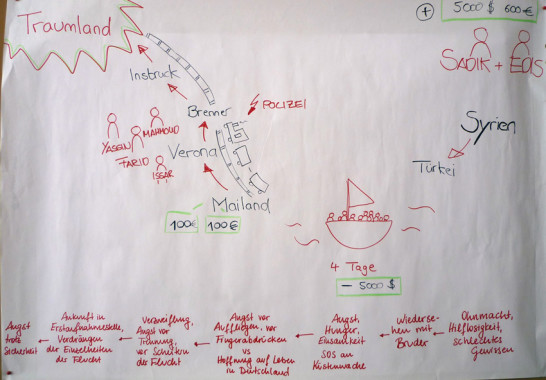 Traumland
+
5000 $ 600 €
SADIK + EDIS
Insbruck
Brenner
POLIZEI
MAHMOUD
YASSIN
FARID
ISSAR
Verona
Mailand
100€ 100€
Syrien
Türkei
4 Tage
- 5000 $
Angst
trotz
Sicherheit
Ankunft in
Erstaufnahmestelle,
Verdrängen
der Einzelheiten
der Flucht
Verzweiflung,
Angst vor
Trennung,
vor Scheitern
der Flucht
Angst vor
Auffliegen, vor
Fingerabdrücken
vs
Hoffnung auf Leben
in Deutschland
Angst,
Hunger,
Einsamkeit
SOS an
Küstenwache
Wiederse-
hen mit
Bruder
Ohnmacht,
Hilflosigkeit,
schlechtes
Gewissen